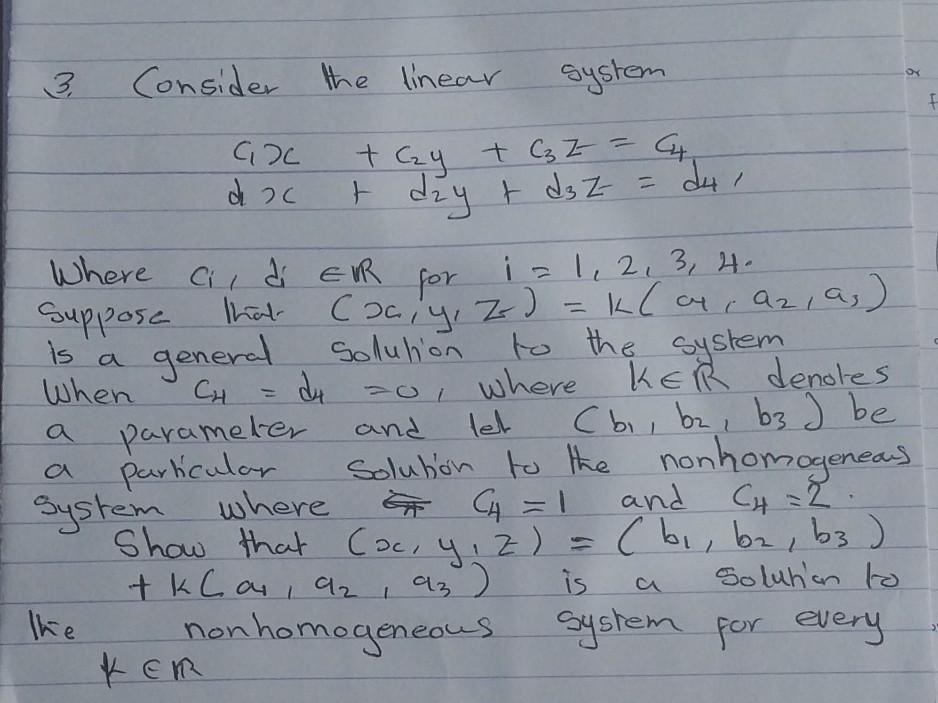 3. Consider the linear system
c₁x + c₂y + c₃z = c₄
d x + d₂y + d₃z = d₄,
Where ci, di ∈ ℝ for i = 1, 2, 3, 4.
Suppose that (x, y, z) = k(a₁, a₂, a₃)
is a general solution to the system
When c₄ = d₄ = 0, where k ∈ ℝ denotes
a parameter and let (b₁, b₂, b₃) be
a particular solution to the nonhomogeneas
system where c₄ = 1 and c₄ = 2.
Show that (x, y, z) = (b₁, b₂, b₃)
+ k(a₁, a₂, a₃) is a solution to
the nonhomogeneous system for every
k ∈ ℝ